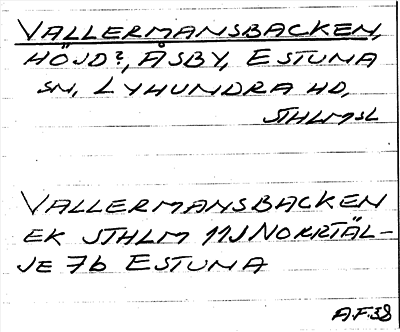 VALLERMANSBACKEN,
HÖJD?, ÅSBY, ESTUNA
SN, LYHUNDRA HD,
STHLMSL
VALLERMANSBACKEN
EK STHLM 11J NORRTÄL-
JE 7b ESTUNA
A.F.38